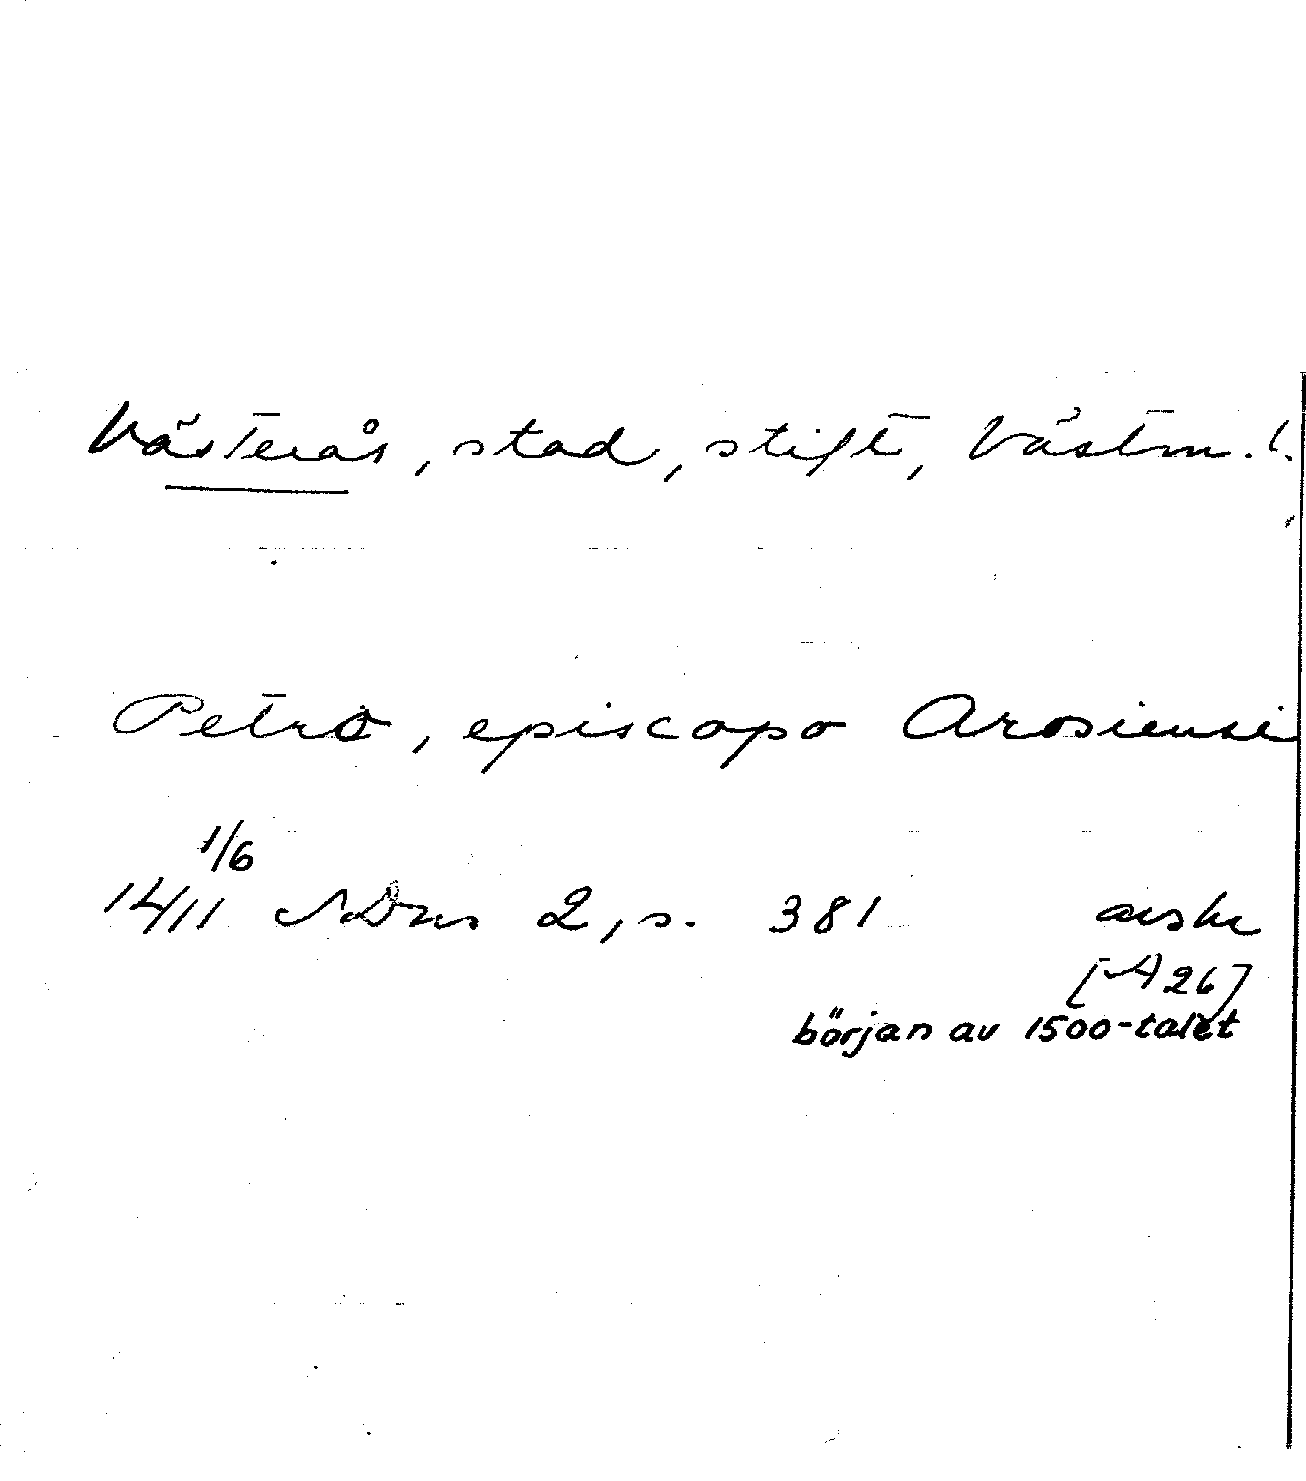 Västerås, stad, stift, Västm. l.
Petro, episcopo Arosiensi
1/6
14/11 NDns 2, s. 381 avskr
[A 26]
början av 1500-talet